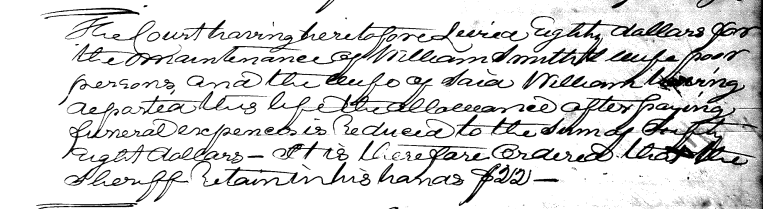 The Court having heretofore Levied Eighty dollars for
the maintenance of William Smith & wife poor
persons, and the wife of said William having
departed this life the allowance after paying
funeral expences is Reduced to the Sum of Fifty
Eight dollars — It is therefore Ordered that the
Sheriff Retain in his hands $22 —